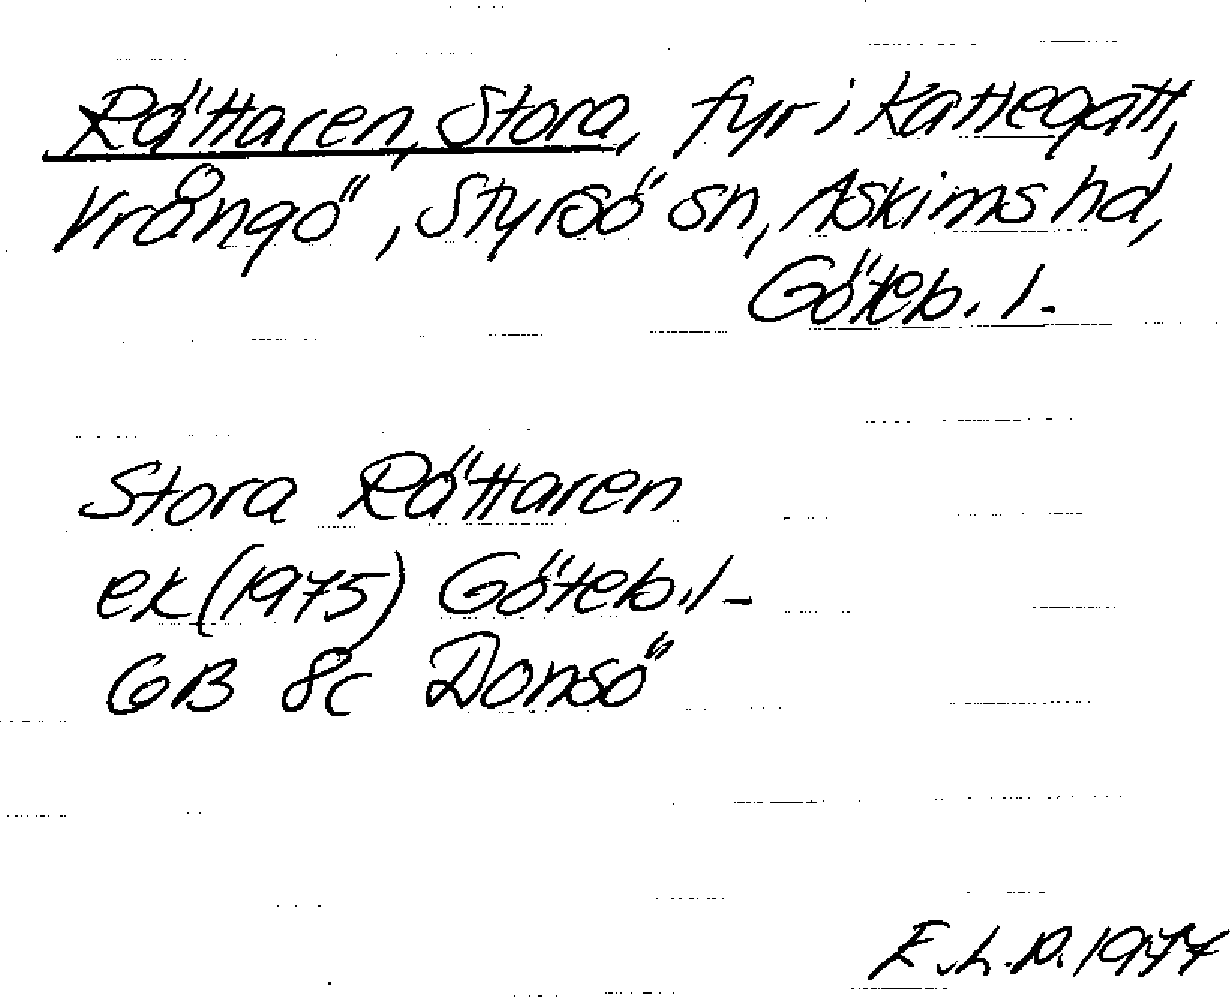 Rättaren, Stora, fyr i Kattegatt,
Vrångö, Styrsö sn, Askims hd,
Göteb. l.
Stora Rättaren
ek (1975) Göteb. l.
GB 8c Donsö
E.L.P. 1977